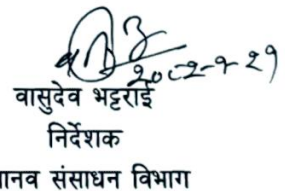 वासुदेव भट्टराई
निर्देशक
मानव संसाधन विभाग